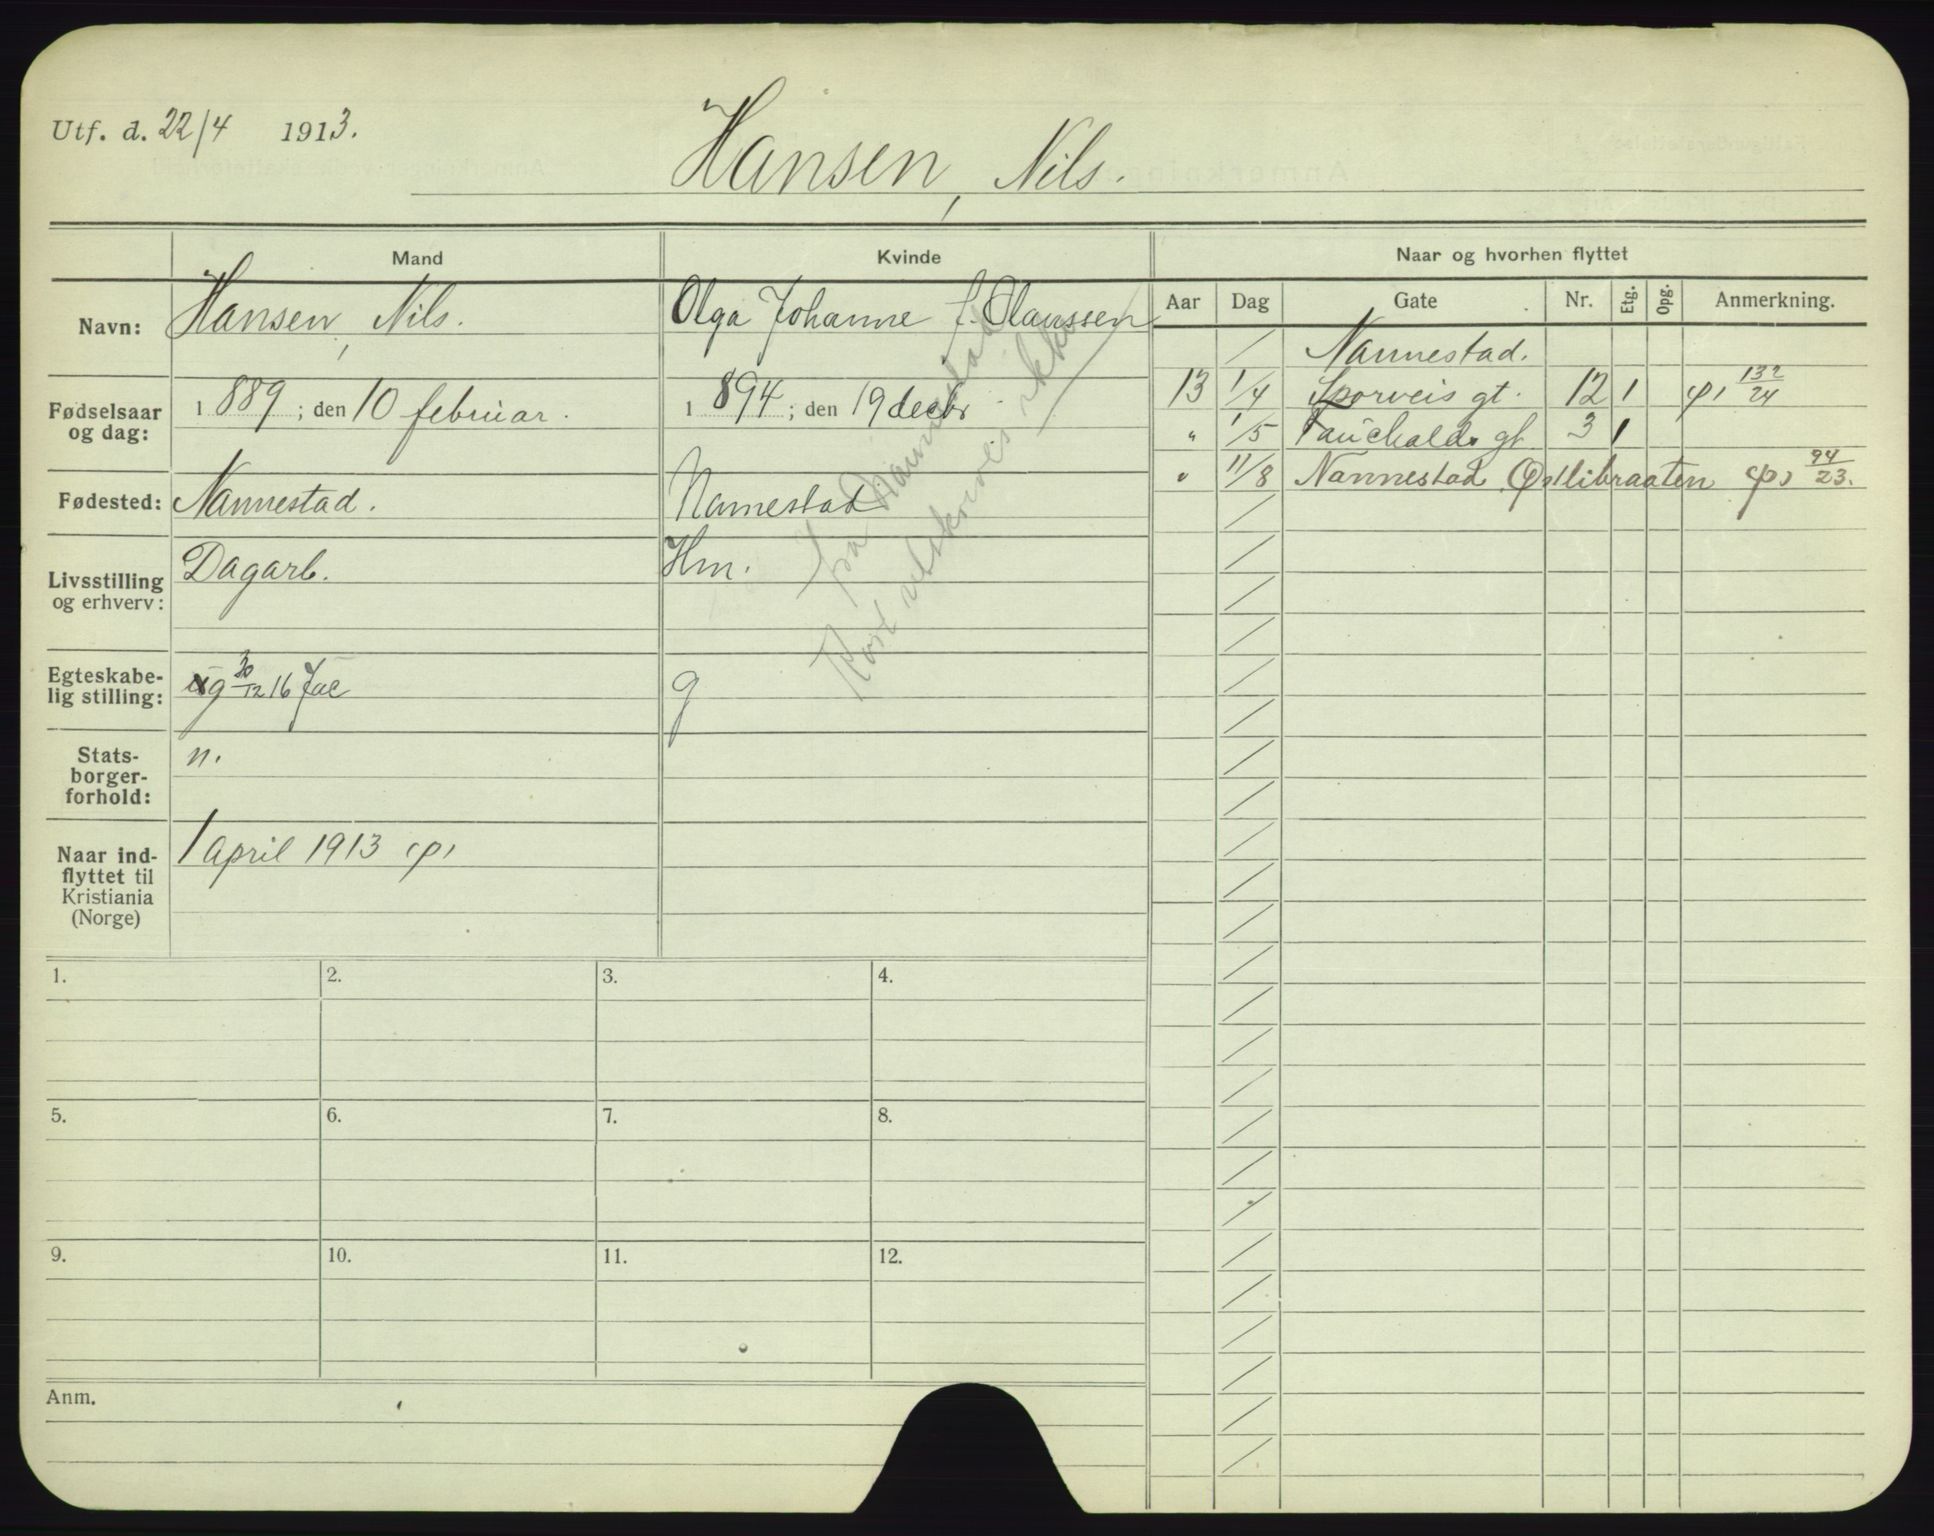 Utf. d. 22/4 1913.
Hansen, Nils.
Mand
Kvinde
Naar og hvorhen flyttet
Navn:
Hansen, Nils.
Olga Johanne f. Olaussen
Fødselsaar og dag:
1889; den 10 februar.
1894; den 19 decbr
Fødested:
Nannestad.
Nannestad
Livsstilling og erhverv:
Dagarb.
Hm.
fra Nannestad
Kort utskrives ikke
Egteskabe-
lig stilling:
g 30/12 16 Jac
g
Stats-
borger-
forhold:
n.
Naar ind-
flyttet til
Kristiania
(Norge)
1 april 1913
Aar Dag Gate Nr. Etg. Opg. Anmerkning.
/ Nannestad.
13 1/4 Sporveis gt. 12 1 132/24
" 1/5 Fauchalds gt 3 1
" 11/8 Nannestad Østlibraaten 94/23.
1. 2. 3. 4.
5. 6. 7. 8.
9. 10. 11. 12.
Anm.